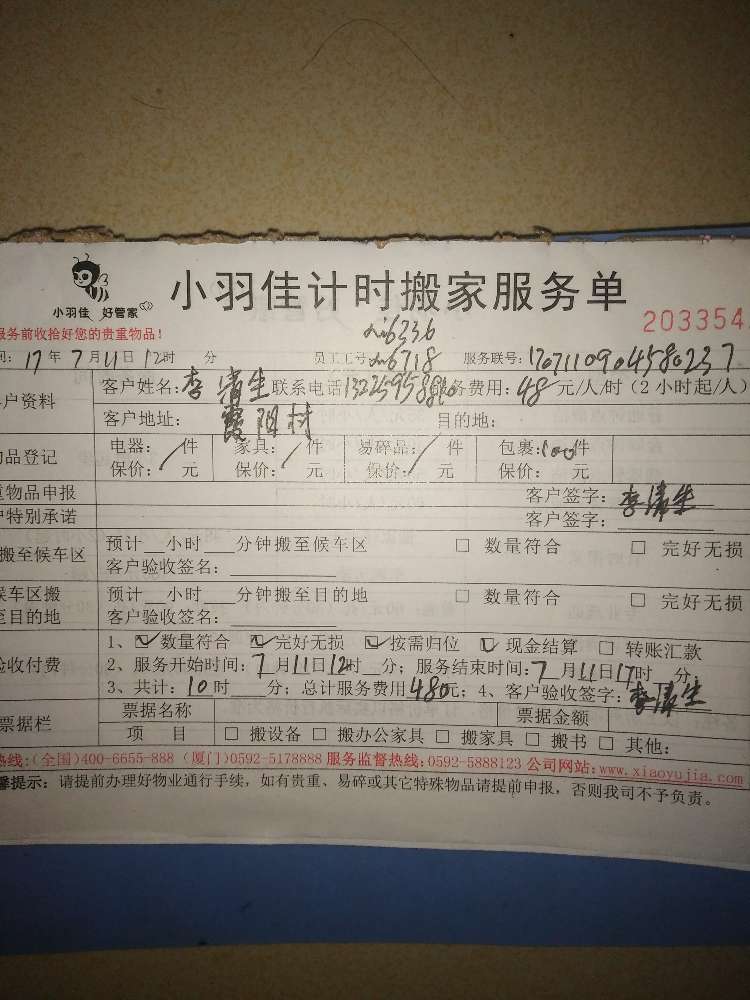 小羽佳 好管家
小羽佳计时搬家服务单
服务前收拾好您的贵重物品!
203354
6336
间: 17年7月11日12时 分 员工工号 6718 服务联号: 1707110904580237
客户资料 客户姓名: 李清生 联系电话 服务费用: 48元/人/时(2小时起/人)
客户地址: 霞阳村 目的地:
物品登记 电器: / 件 家具: / 件 易碎品: / 件 包裹: 100件
保价: 元 保价: 元 保价: 元 保价: 元
重物品申报 客户签字: 李清生
户特别承诺 客户签字:
搬至候车区 预计__小时___分钟搬至候车区 □ 数量符合 □ 完好无损
客户验收签名:
候车区搬 预计__小时___分钟搬至目的地 □ 数量符合 □ 完好无损
至目的地 客户验收签名:
验收付费 1、☑数量符合 ☑完好无损 ☑按需归位 ☑现金结算 □ 转账汇款
2、服务开始时间: 7月11日12时 分; 服务结束时间: 7月11日17时 分
3、共计: 10时___分; 总计服务费用480元; 4、客户验收签字: 李清生
票据栏 票据名称 票据金额
项 目 □ 搬设备 □ 搬办公家具 □ 搬家具 □ 搬书 □ 其他:
热线:(全国)400-6655-888 (厦门)0592-5178888 服务监督热线:0592-5888123 公司网站:www.xiaoyujia.com
馨提示: 请提前办理好物业通行手续,如有贵重、易碎或其它特殊物品请提前申报,否则我司不予负责。